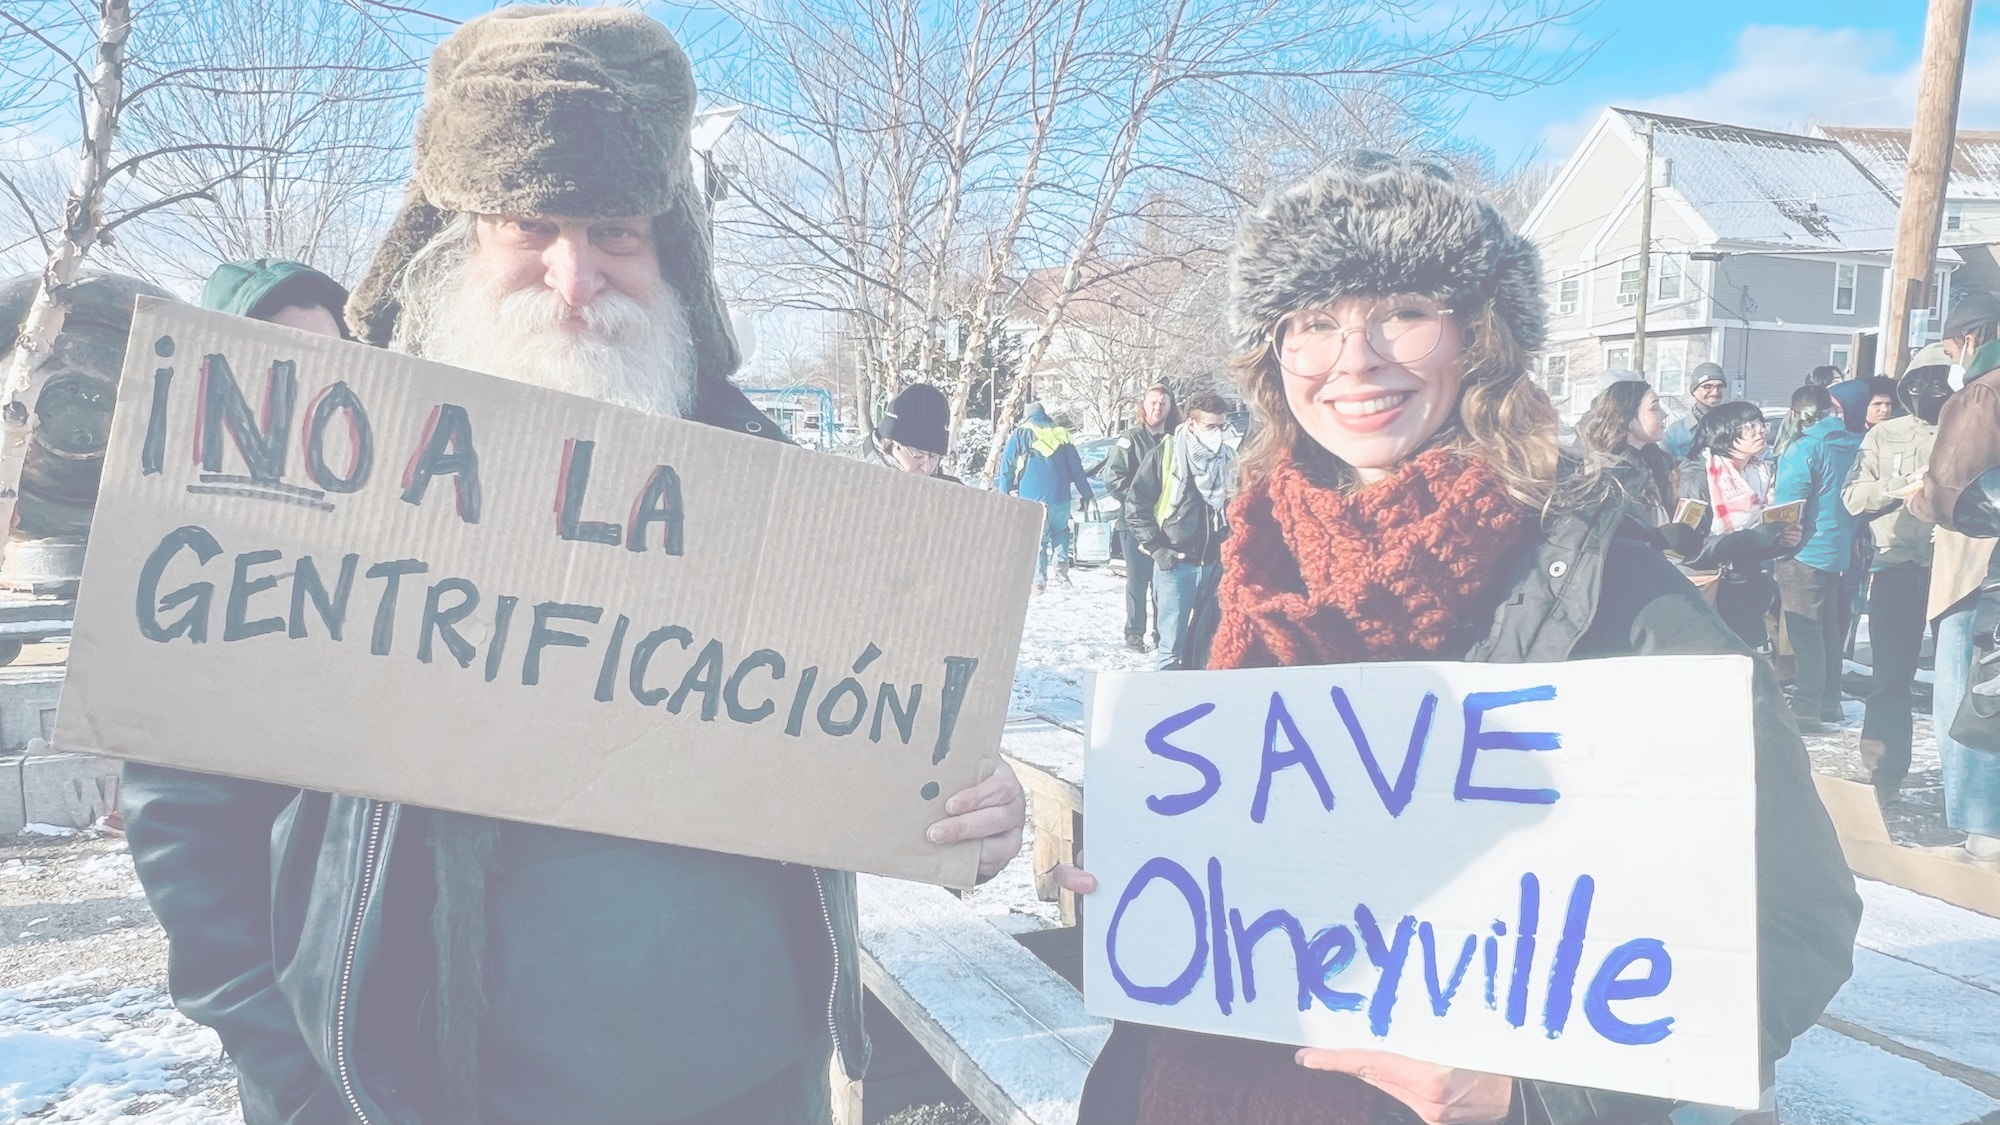 ¡NO A LA
GENTRIFICACIÓN!
SAVE
Olneyville